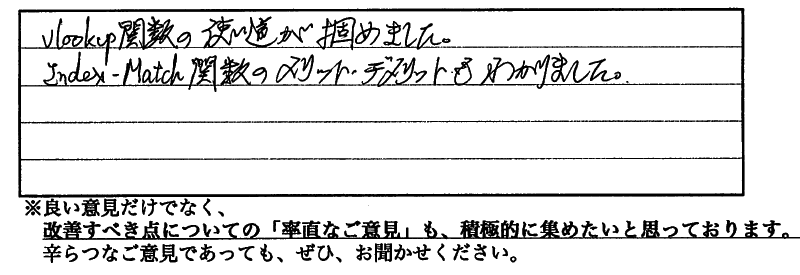 Vlookup関数の使い道が掴めました。
Index-Match関数のメリット・デメリットもわかりました。
※良い意見だけでなく、
改善すべき点についての「率直なご意見」も、積極的に集めたいと思っております。
辛らつなご意見であっても、ぜひ、お聞かせください。